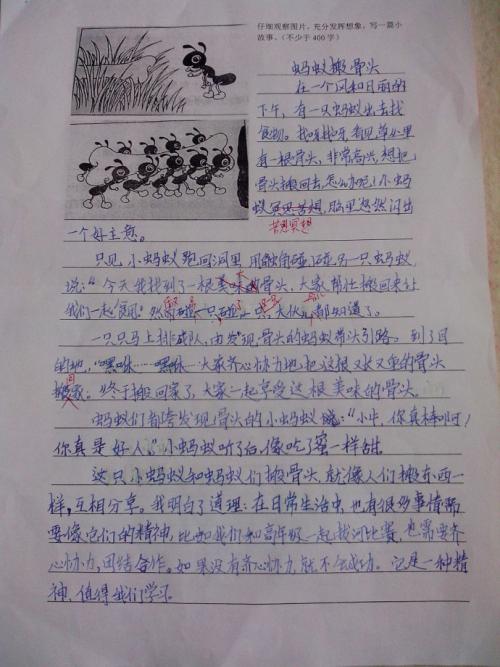 仔细观察图片，充分发挥想象，写一篇小
故事。（不少于400字）
蚂蚁搬骨头
在一个风和日丽的
下午，有一只蚂蚁出去找
食物。找呀找呀看见草丛里
有一根骨头，非常高兴，想把
骨头搬回去，怎么办呢？小蚂
蚁冥思苦想，脑里忽然闪出
苦思冥想
一个好主意。
只见小蚂蚁跑回洞里，用触角碰碰另一只蚂蚁
说：“今天我找到了一根美味大骨头，大家帮忙搬回来让
我们一起饱
一只碰一只，大伙儿都知道了。
一只只马上排成队，由发现骨头的蚂蚁带头引路。到了目
的地，“嘿咻……嘿咻……大家齐心协力地把这根又长又重的骨头
搬回家。终于搬回家了，大家一起享受这根美味的骨头。
蚂蚁们都夸发现骨头的小蚂蚁说：“小牛，你真棒啊！
你真是好人。”小蚂蚁听了后，像吃了蜜一样甜。
这只小蚂蚁和蚂蚁们搬骨头，就像人们搬东西一
样，互相分享。我明白了道理：在日常生活中，也有很多事情需
要像它们的精神，比如我们和高年级一起拔河比赛，也需要齐
心协力，团结合作。如果没有齐心协力，就不会成功。它是一种精
神，值得我们学习。